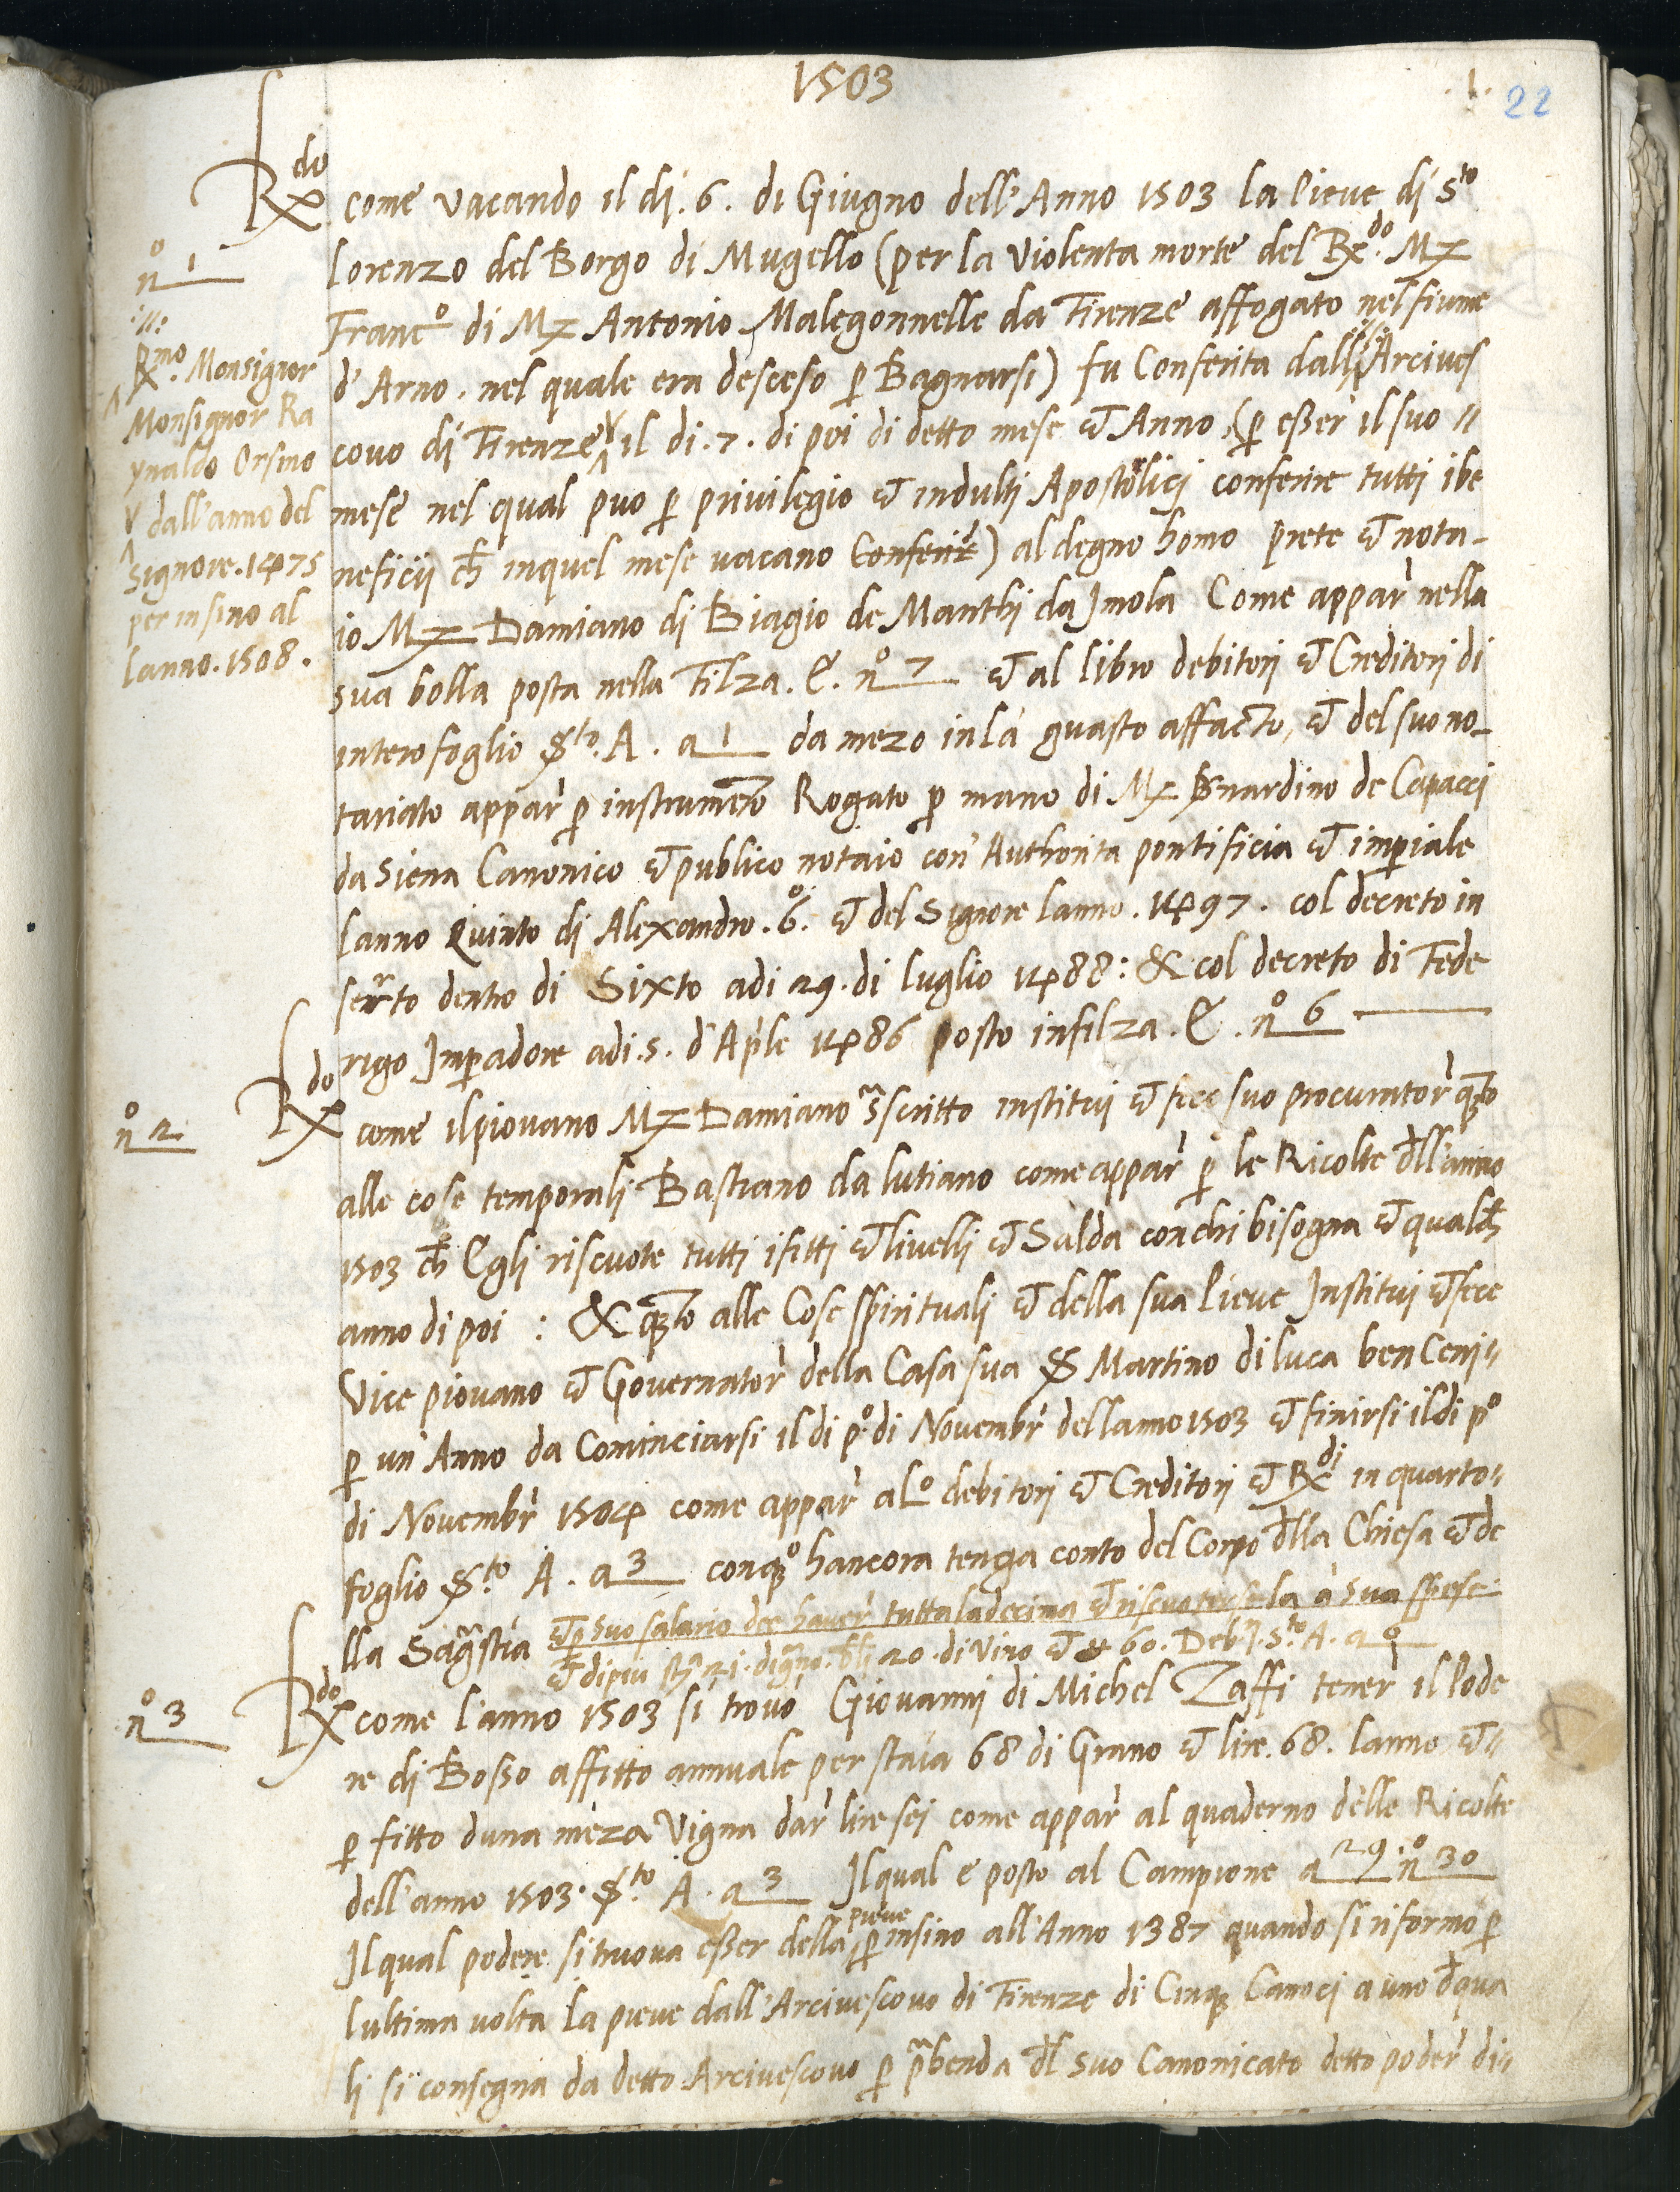 1503
1.
22
Rdo come vacando il dì. 6. di Giugno dell'Anno 1503 la Pieve di Sto
nº 1
Lorenzo del Borgo di Mugello (per la violenta morte del Rdo. Mz
Francº di Mz Antonio Malegonnelle da Firenze affogato nel fiume
d'Arno. nel quale era desceso p Bagnarsi) fu Conferita dall' Arcives
Rmo. Monsignor
Monsignor Ra
ynaldo Orsino
V dall'anno del
Signore. 1475
per insino al
lanno. 1508.
covo di Firenze il di. 7. di poi di detto mese et Anno, (p esser il suo //
mese nel qual puo p privilegio et indulti Apostolici conferire tutti i be
neficii ch inquel mese vacano Conferir) al degno homo prete et nota-
io Mz Damiano di Biagio de Manthi da Imola Come appar nella
sua bolla posta nella Filza. E. nº 7 et al libro debitori et Creditori di
intero foglio Sto. A. a 1 da mezo in là guasto affacto, et del suo no-
tariato appar p instrumeto Rogato p mano di Mz Bnardino de Capacci
da Siena Canonico et publico notaio con Authorita pontificia et imperiale
lanno Quinto di Alexandro. 6º. et del Signore lanno. 1497. col decreto in
serto dentro di Sixto adi 29. di luglio 1488: & col decreto di Fede
rigo Imperadore adi. 5. d'Aple 1486 posto infilza. E. nº 6
nº 2
Rdo come il piovano Mz Damiano sscritto institui et fece suo procurator qto
alle cose temporali Bastiano da lutiano come appar p le Ricolte dll'anno
1503 ch Egli riscuote tutti i fitti et livelli et Salda con chi bisogna et qualch
anno di poi : & qto alle Cose spirituali et della sua Pieve Institui et fece
Vice piovano et Governator della Casa sua S Martino di luca ben Ceni//
p un Anno da Cominciarsi il di pº. di Novembr dellanno 1503 et finirsi il di pº
di Novembr 1504 come appar al Lº debitori et Creditori et Rdi in quarto//
foglio Sto A. a 3 conqº hancora tenga conto del Corpo dlla Chiesa et de
lla Sagrstia et p suo salario dee haver tutta la decima et riscuotersela a sua spese
et di piu sta 21. di grno. bli 20. di Vino et 60. Deb. Sto A. a
nº 3
Rdo come l'anno 1503 si trovo Giovanni di Michel Zaffi tener il Pode
re di Bosso affitto annuale per staia 68 di Grano et lire. 68. lanno et//
p fitto duna meza Vigna dar lire sei come appar al quaderno delle Ricolte
dell'anno 1503. Sto A. a 3 Il qual e posto al Campione a 29. nº 30
Il qual podere si truova esser della pieve p insino all'Anno 1387 quando si riformo p
lultima volta la pieve dall'Arcivescovo di Firenze di Cinq Canoci a uno d qua
li si consegna da detto Arcivescovo p prbenda dl suo Canonicato detto poder di//